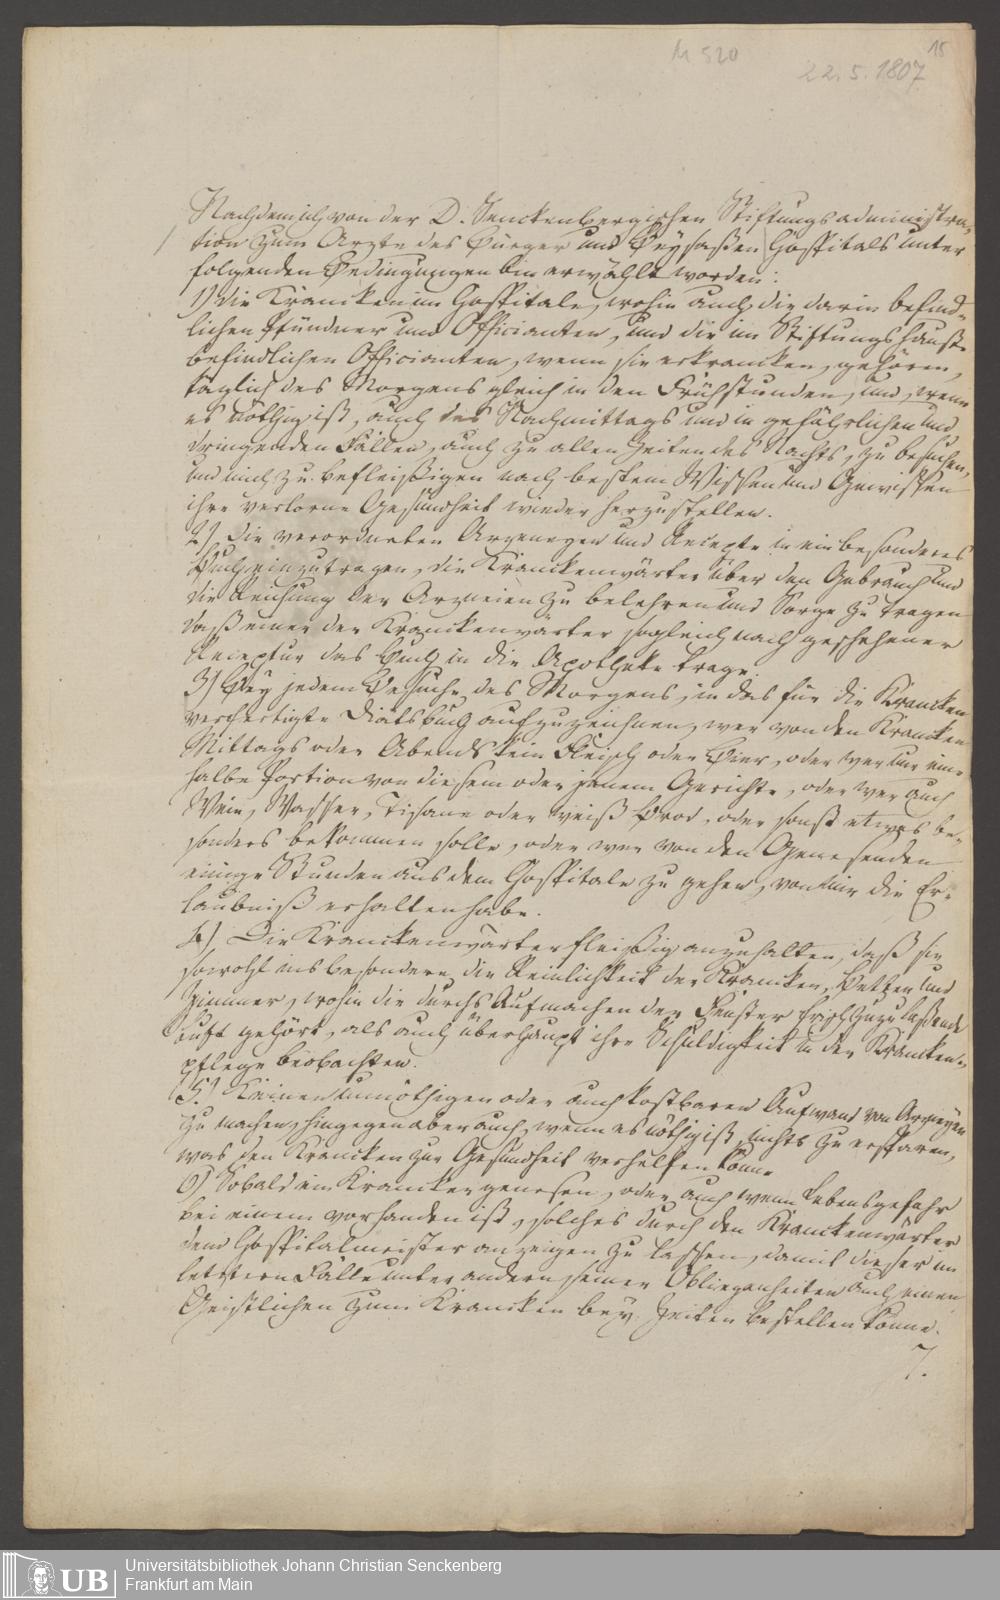 M 520
15
22. 5. 1807
Nachdem ich von der D. Senckenbergischen Stiftungsadministra-
tion zum Arzte des Burger und Beysaßen Hospitals unter
folgenden Bedingungen bin erwählt worden:
1) die Krancken im Hospitale, wohin auch die darin befind-
lichen Pfründner und Officianten, und die im Stiftungshause
befindlichen Officianten, wenn sie erkrancken, gehören,
täglich des Morgens gleich in den Frühstunden, und, wenn
es nöthig ist, auch des Nachmittags und in gefährlichen und
dringenden Fällen, auch zu allen Zeiten des Nachts, zu besuchen,
und mich zu befleißigen nach bestem Wissen und Gewissen
ihre verlorne Gesundheit wieder herzustellen.
2) die verordneten Arzeneyen und Recepte in ein besonderes
Buch einzutragen, die Kranckenwärter über den Gebrauch und
die Reichung der Arzneien zu belehren und Sorge zu tragen
daß einer der Kranckenwärter sogleich nach geschehener
Receptur das Buch in die Apotheke trage.
3) Bey jedem Besuche des Morgens, in das für die Krancken
verfertigte Diätsbuch aufzuzeichnen, wer von den Krancken
Mittags oder Abends kein Fleisch oder Bier, oder wer nur eine
halbe Portion von diesem oder jenem Gerichte, oder wer auch
Wein, Wasser, Tisane oder weiß Brod, oder sonst etwas be-
sonders bekommen solle, oder wer von den Genesenden
einige Stunden aus dem Hospitale zu gehen, von mir die Er-
laubniß erhalten habe.
4) Die Kranckenwärter fleißig anzuhalten, daß sie
sowohl insbesondere die Reinlichkeit der Krancken, Betten und
Zimmer, wohin die durchs Aufmachen der Fenster frisch zuzulaßende
Luft gehört, als auch überhaupt ihre Schuldigkeit in der Krancken-
pflege beobachten.
5) Keinen unnöthigen oder auch kostbaren Aufwand von Arzneyen
zu machen, hingegen aber auch, wenn es nöthig ist, nichts zu ersparen,
was den Krancken zur Gesundheit verhelfen könne
6) Sobald ein Krancker genesen, oder auch wenn Lebensgefahr
bei einem vorhanden ist, solches durch den Kranckenwärter
dem Hospitalmeister anzeigen zu lassen, damit dieser im
letztern Falle unter andern seiner Obliegenheiten auch einen
Geistlichen zum Krancken bey Zeiten bestellen könne.
7.
UB
Universitätsbibliothek Johann Christian Senckenberg
Frankfurt am Main